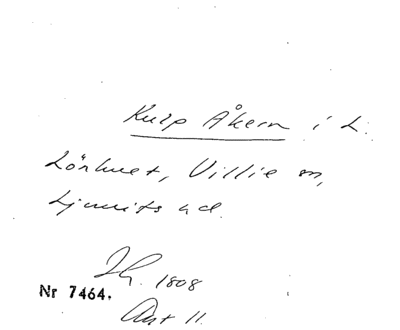 Kulp Åkern i L.
Lönhult, Villie sn,
Ljunits hd.
Jh. 1808
Nr 7464.
Akt 11.